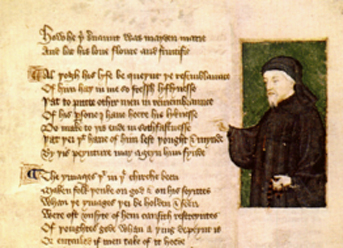 How he þi seruaunt was mayden marie
And lat his loue floure and fructifie
Al þogh his lyfe be queynt þe resemblaunce
Of him haþ in me so fressh lyflynesse
Þat to putte othir men in remembraunce
Of his persone I haue heere his lyknesse
Do make to þis ende in sothfastnesse
Þat þei þt haue of him lest þought & mynde
By þis peynture may ageyn him fynde
The ymages þt in þe chirche been
Maken folk þenke on god & on his seyntes
Whan þe ymages þei beholden & seen
Were oft vnsyte of hem causith restreyntes
Of þoughtes gode whan a þing depeynt is
Or entailed if men take of it heede